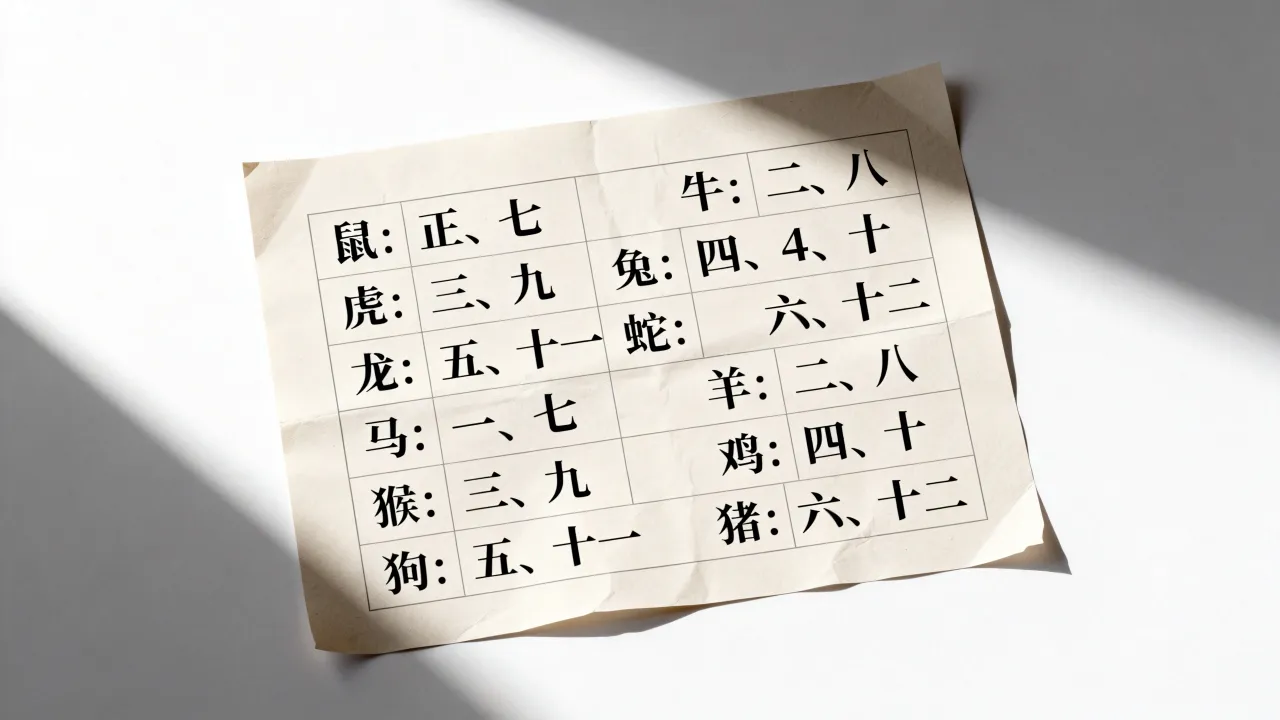 鼠：正、七 牛：二、八
虎：三、九 兔：四、4、十
龙：五、十一 蛇：六、十二
马：一、七 羊：二、八
猴：三、九 鸡：四、十
狗：五、十一 猪：六、十二